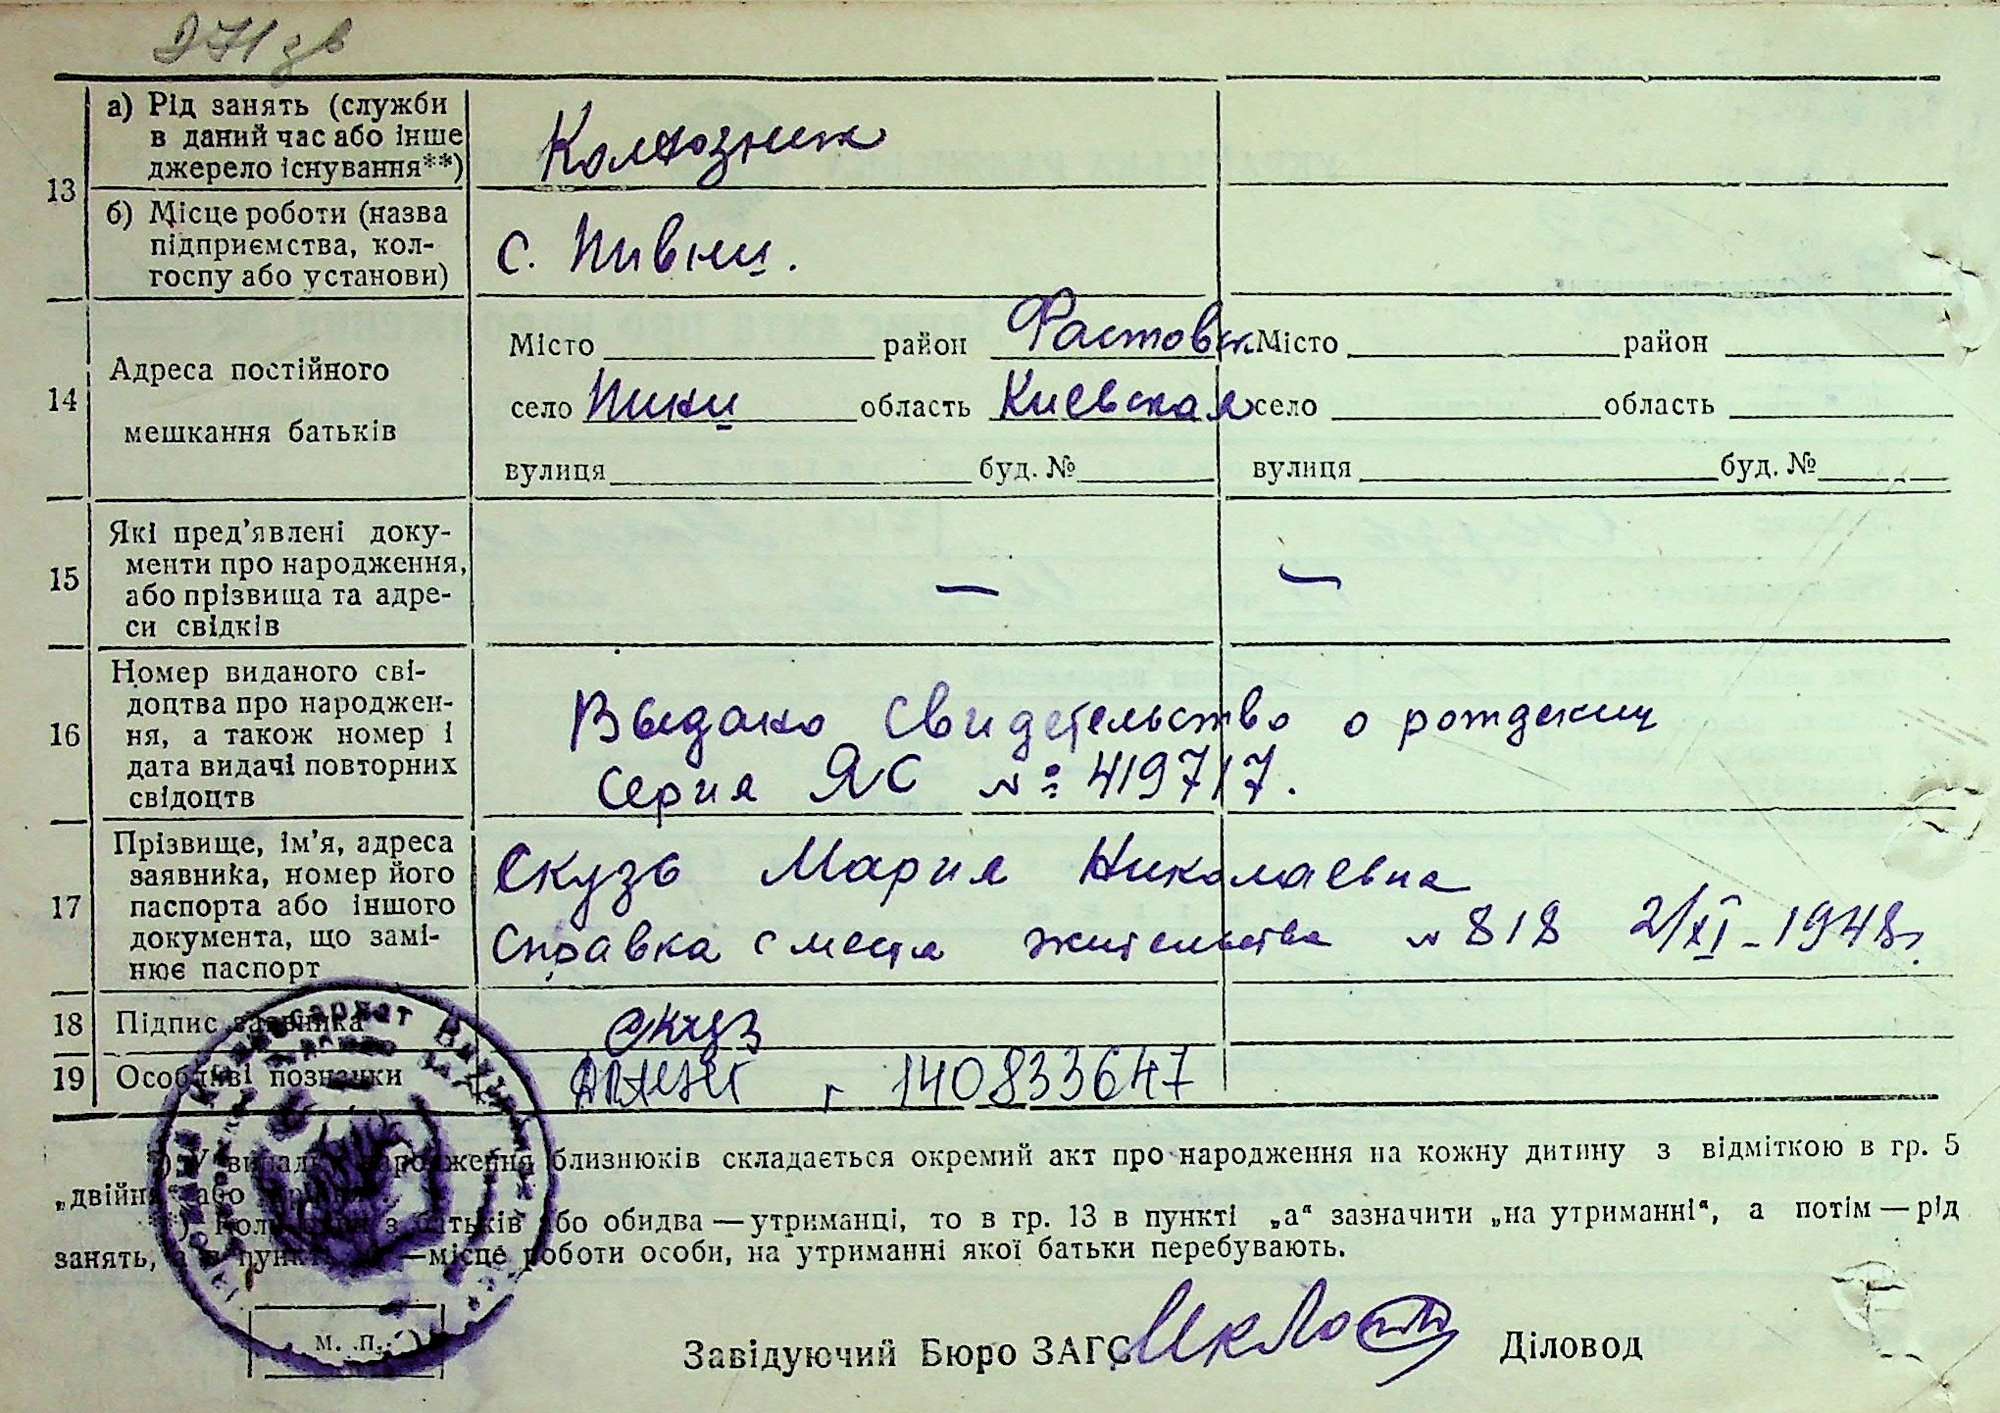 271 зв
13
а) Рід занять (служби
в даний час або інше
джерело існування**)
Колхозник
б) Місце роботи (назва
підприємства, кол-
госпу або установи)
с. Пивни.
14
Адреса постійного
мешкання батьків
Місто район Фастовск
село Пивни область Киевская
вулиця буд. №
Місто район
село область
вулиця буд. №
15
Які пред’явлені доку-
менти про народження,
або прізвища та адре-
си свідків
— —
16
Номер виданого сві-
доцтва про народжен-
ня, а також номер і
дата видачі повторних
свідоцтв
Выдано свидетельство о рождении
Серия ЯС № 419717.
17
Прізвище, ім’я, адреса
заявника, номер його
паспорта або іншого
документа, що замі-
нює паспорт
Скузь Мария Николаевна
Справка с места жительства № 818 2/XI-1948г.
18
Підпис заявника
Скуз
19
Особливі позначки
г 140833647
*) У випадку народження близнюків складається окремий акт про народження на кожну дитину з відміткою в гр. 5
„двійня“ або
**) Коли один з батьків або обидва — утриманці, то в гр. 13 в пункті „а“ зазначити „на утриманні“, а потім — рід
занять, а в пункті — місце роботи особи, на утриманні якої батьки перебувають.
М. П.
Завідуючий Бюро ЗАГС
Діловод